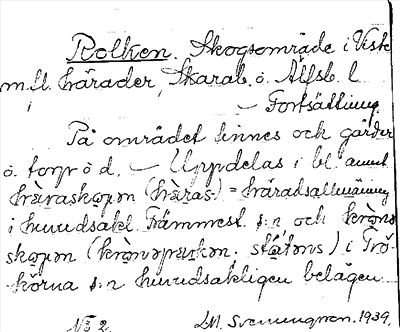 Rolken. Skogsområde i Viste
m.fl. härader, Skarab. o. Älfsb. l
— Fortsättning
På området finnes och gårder
o. torp ö d. — Uppdelas i bl. annat
hä̀raskoͅgən (hä̀ras-) = häradsallmänning
i huvudsakl. Främmest. s:n och krò̀nə
skoͅgən (krò̀nəpaꝛkən. stá̀təns) i Trö-
körna s:n huvudsakligen belägen
No 2. I.M. Svenungsson. 1939.